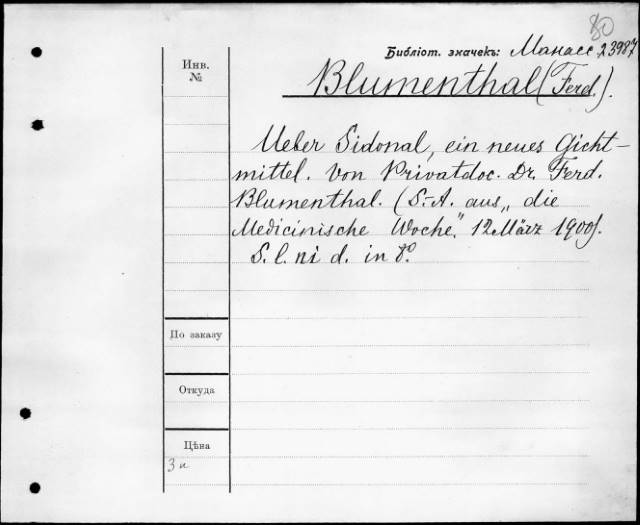 80
Библіот. значекъ: Манасс 23987
Инв.
№
Blumenthal (Ferd.).
Ueber Sidonal, ein neues Gicht-
mittel. Von Privatdoc. Dr. Ferd.
Blumenthal. (S.-A. aus „die
Medicinische Woche". 12 März 1900).
S. l. ni d. in 8º.
По заказу
Откуда
Цѣна
3 и